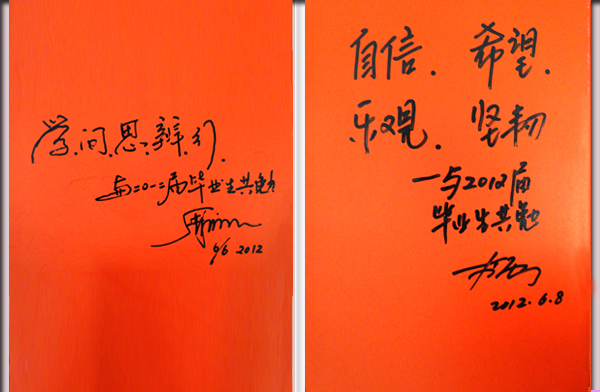 学、问、思、辨、行.
与二〇一二届毕业生共勉
6/6 2012
自信. 希望.
乐观. 坚韧
—与2012届
毕业生共勉
2012.6.8